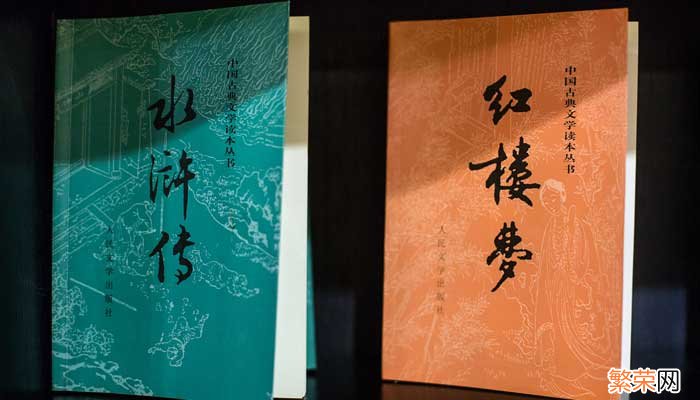 中国古典文学读本丛书
水浒传
人民文学出版社
中国古典文学读本丛书
红楼梦
人民文学出版社
繁荣网